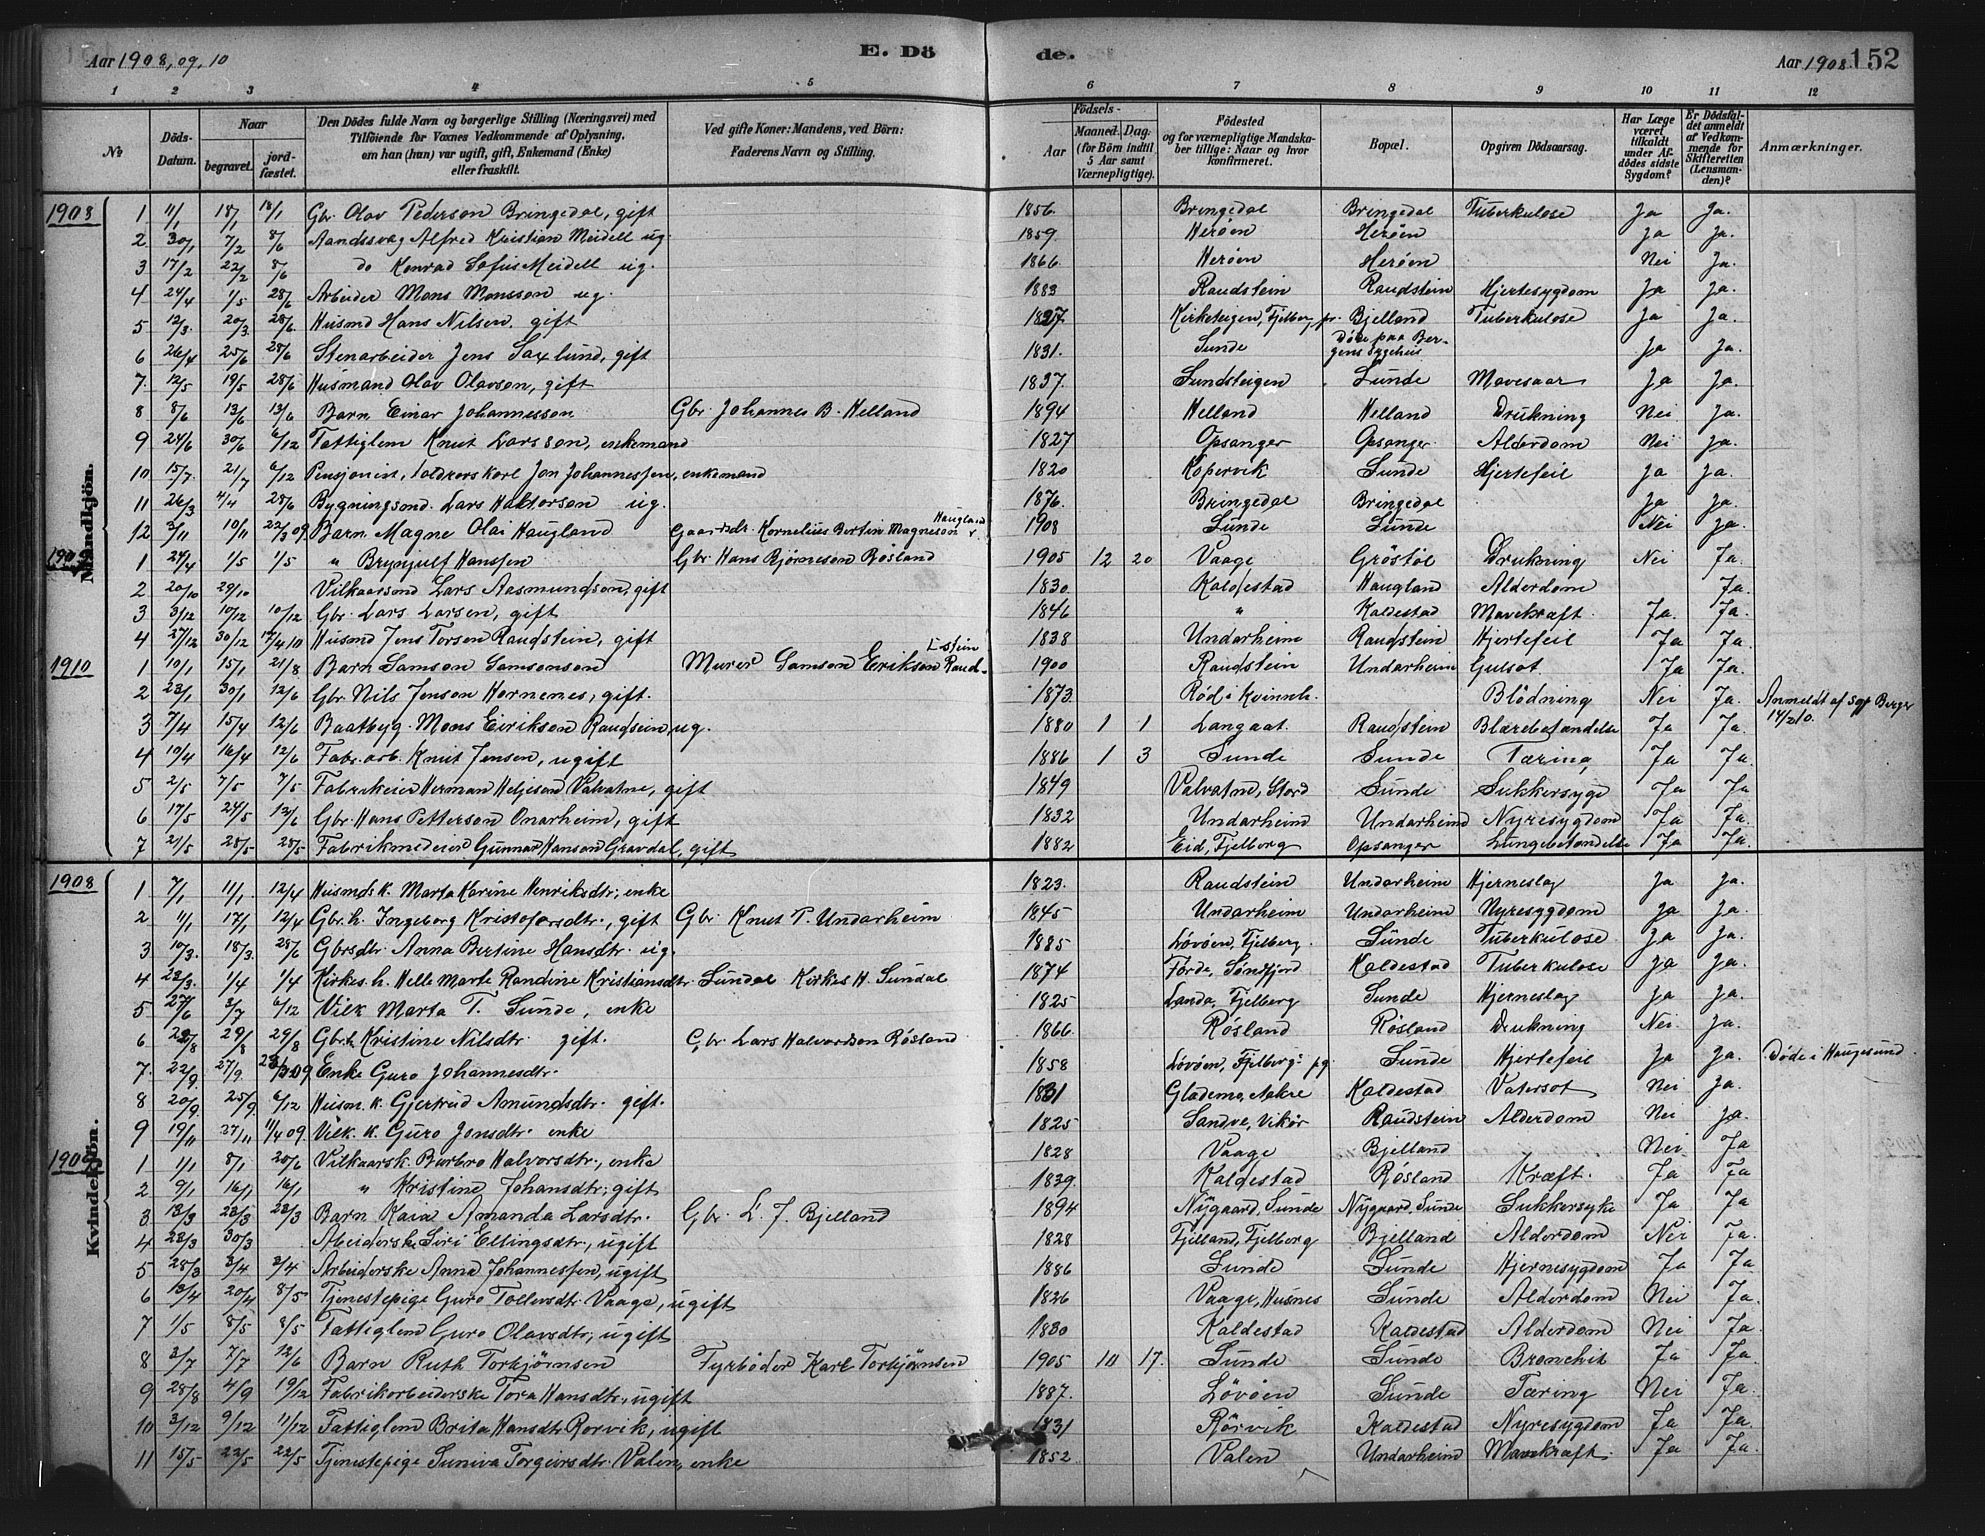 Aar 1908, 09, 10
E. Dö
de.
Aar 1908
152
1 2 3 4 5 6 7 8 9 10 11 12
№
Döds-Datum.
Naar
begravet.
jord-fæstet.
Den Dödes fulde Navn og borgerlige Stilling (Næringsvei) med
Tilföiende for Voxnes Vedkommende af Oplysning,
om han (hun) var ugift, gift, Enkemand (Enke)
eller fraskilt.
Ved gifte Koner: Mandens, ved Börn:
Faderens Navn og Stilling.
Födsels-
Aar
Maaned. Dag.
(for Börn indtil
5 Aar samt
Værnepligtige).
Födested
og for værnepligtige Mandska-
ber tillige: Naar og hvor
konfirmeret.
Bopæl.
Opgiven Dödsaarsag.
Har Læge
været
tilkaldt
under Af-
dödes sidste
Sygdom?
Er Dödsfal-
det anmeldt
af Vedkom-
mende for
Skifteretten
(Lensman-
den)?
Anmærkninger.
Mandkjön.
1908
1 11/1 18/1 18/1 Gbr. Olav Pederson Bringedal, gift 1856 Bringedal Bringedal Tuberkulose Ja Ja.
2 30/1 7/2 8/6 Aandssvag Alfred Kristian Meidell ug. 1859 Herøen Herøen Ja Ja.
3 17/2 22/2 8/6 do Konrad Sofus Meidell ug. 1866 Herøen Herøen Nei Ja.
4 24/4 1/5 28/6 Arbeider Mons Monsson ug. 1883 Raudstein Raudstein Hjertesygdom Ja Ja.
5 12/3 20/3 28/6 Husmd Hans Nilsen. gift 1827 Kirketeigen, Fjelberg pr. Bjelland Tuberkulose Ja Ja.
6 26/4 25/6 28/6 Stenarbeider Jens Saxlund, gift 1831. Sunde Döde paa Ber-
gens Sygehus Ja Ja.
7. 12/5 19/5 28/6 Husmand Olav Olavson, gift 1837. Sundsteigen Sunde Mavesaar Ja Ja.
8 8/6 13/6 13/6 Barn Einar Johannesson Gbr. Johannes B. Helland 1894 Helland Helland Drukning Nei Ja.
9 24/6 30/6 6/12 Fattiglem Knut Larsson, enkemand 1827 Opsanger Opsanger Alderdom Nei Ja.
10 15/7. 21/7 6/12 Pensjonist, Toldrorskarl Jon Johannessen, enkemand 1820 Kopervik Sunde Hjertefeil Ja Ja.
11 26/3 4/4 28/6 Bygningsmd. Lars Haktorson ug. 1876. Bringedal Bringedal Ja Ja.
12 3/11 10/11 22/3 09 Barn Magne Olai Haugland Gaardbr. Kornelius Bertin Magneson Haugland 1908 Sunde Sunde Nei Ja.
1909
1 24/4 1/5 1/5 " Brynjulf Hansen Gbr Hans Bjørneson Røsland 1905 12 20 Vaage Grøstøl Drukning Nei Ja.
2 20/10 29/10 Vilkaarsmd Lars Aasmundson, gift 1830. Kaldestad Haugland Alderdom Ja.
3 3/12 10/12 10/12 Gbr. Lars Larsen, gift 1846 " Kaldestad Mavekræft. Ja. Ja.
4 27/12 30/12 17/4 10 Husmd Jens Torsen Raudstein, gift 1838 Undarheim Raudstein Hjertefeil Ja Ja.
1910
1 10/1 15/1 21/8 Barn Samson Samsonson Murer Samson Eirikson Raud-stein 1900 Raudstein Undarheim Gulsot Ja Ja.
2 23/1 30/1 12/6 Gbr. Nils Jenson Hornenes, gift. 1873. Rød i Kvinnh. Blödning Nei Ja. Anmeldt af Sgpr Berger
14/2 10.
3 7/4 15/4 12/6 Baatbyg. Mons Eirikson Raudsein, ug. 1880 1 1 Langaat. Raudstein Blærebetændelse Ja Ja.
4 10/4 16/4 12/6 Fabr. arb. Knut Jensen, ugift 1886 1 3 Sunde Sunde Tæring Ja Ja.
5 2/5 7/5 7/5 Fabrikeier Herman Heljeson Valvatne, gift 1849 Valvatne, Stord Sunde Sukkersyge Ja Ja
6 17/5 24/5 12/6 Gbr. Hans Petterson Onarheim, gift 1832 Undarheim Undarheim Nyresygdom Ja Ja.
7 21/5 28/5 28/5 Fabrikmedeier Gunnar Hanson Gravdal, gift 1882 Eid, Fjelberg Opsanger Lungebetændelse Ja Ja.
Kvindekjön.
1908
1 7/1 11/1. 12/4 Husmds k. Marta Karine Henriksdtr; enke 1823. Raudstein Undarheim Hjerneslag Ja Ja.
2 11/1 17/1 12/4 Gbr. h. Ingeborg Kristofersdtr., gift Gbr. Knut T. Undarheim 1845 Undarheim Undarheim Nyresygdom Ja Ja.
3 10/3. 18/3. 28/6 Gbrsdtr. Anna Bertine Hansdtr. ug. 1885 Løvøen, Fjelberg. Sunde Tuberkulose Ja Ja.
4 23/3. 1/4 1/4 Kirkes. h. Helle Marte Randine Kristiansdtr. Sundal Kirkes H. Sundal 1874 Førde, Søndfjord Kaldestad Tuberkulose Ja Ja.
5 27/6 3/7 6/12 Vilk Marta T. Sunde, enke 1825 Landa, Fjelberg Sunde Hjerneslag Ja Ja.
6 23/8 29/8 29/8 Gbr.k Kristine Nilsdtr. gift. Gbr. Lars Halvardson Røsland 1866. Røsland Røsland Drukning Nei Ja.
7. 22/9. 27/9. 09 Enke Guro Johannesdtr. 1858 Løvøen, Fjelbergs pg Sunde Hjertefeil Ja Ja. Döde i Haugesund
8 20/9. 25/9 6/12 Husm. k. Gjertrud Amundsdtr. gift. 1831 Gladema, Aakre Kaldestad Vatersot Nei Ja.
9 19/11 27/11 11/4 09. Vilk. k. Guro Jonsdtr. enke 1825 Sandve, Vikør Raudstein Alderdom Nei Ja.
1909
1 1/1 8/1 20/6 Vilkaarsk. Barbro Halvorsdtr., enke 1828 Vaage Bjelland Nei Ja
2 9/1 16/1 16/1 " Kristine Johansdtr; gift 1839. Kaldestad Røsland Kræft. Ja Ja
3 13/3 23/3 23/3 Barn Kaia Amanda Larsdtr. Gbr. L. J. Bjelland 1894 Nygaard, Sunde Nygaard, Sunde Sukkersyke Ja Ja
4 23/3 30/3 Abeiderske Siri Ellingsdtr, ugift 1828 Fjelland, Fjelberg Bjelland Alderdom Nei Ja.
5 28/3 3/4 3/4 Arbeiderske Anna Johannessen, ugift 1886 Sunde Sunde Hjernesygdom Ja Ja
6 13/4 20/4 8/5 Tjenestepige Guro Tollevsdtr. Vaage, ugift 1826 Vaage, Husnes Sunde Alderdom Nei Ja.
7 1/5 8/5 8/5 Fattiglem Guro Olavsdtr, ugift 1830 Kaldestad Kaldestad Alderdom Nei Ja.
8 3/7 7/7 12/6 Barn Ruth Torkjørnsen Fyrbøder Karl Torkjørnsen 1905 10 17. Sunde Sunde Bronchit Ja Ja
9 28/8 4/9 19/12 Fabrikarbeiderske Tora Hansdtr., ugift 1887. Løvøen Sunde Tæring Nei Ja.
10 3/12 9/12 11/12 Fattiglem Brita Hansdtr Rørvik, ugift 1831 Rørvik Kaldestad Nyresygdom Ja Ja.
11 15/5 22/5 22/5 Tjenestepige Suniva Torgeirsdtr. Valen, enke 1852 Valen Undarheim Mavekræft. Ja Ja.